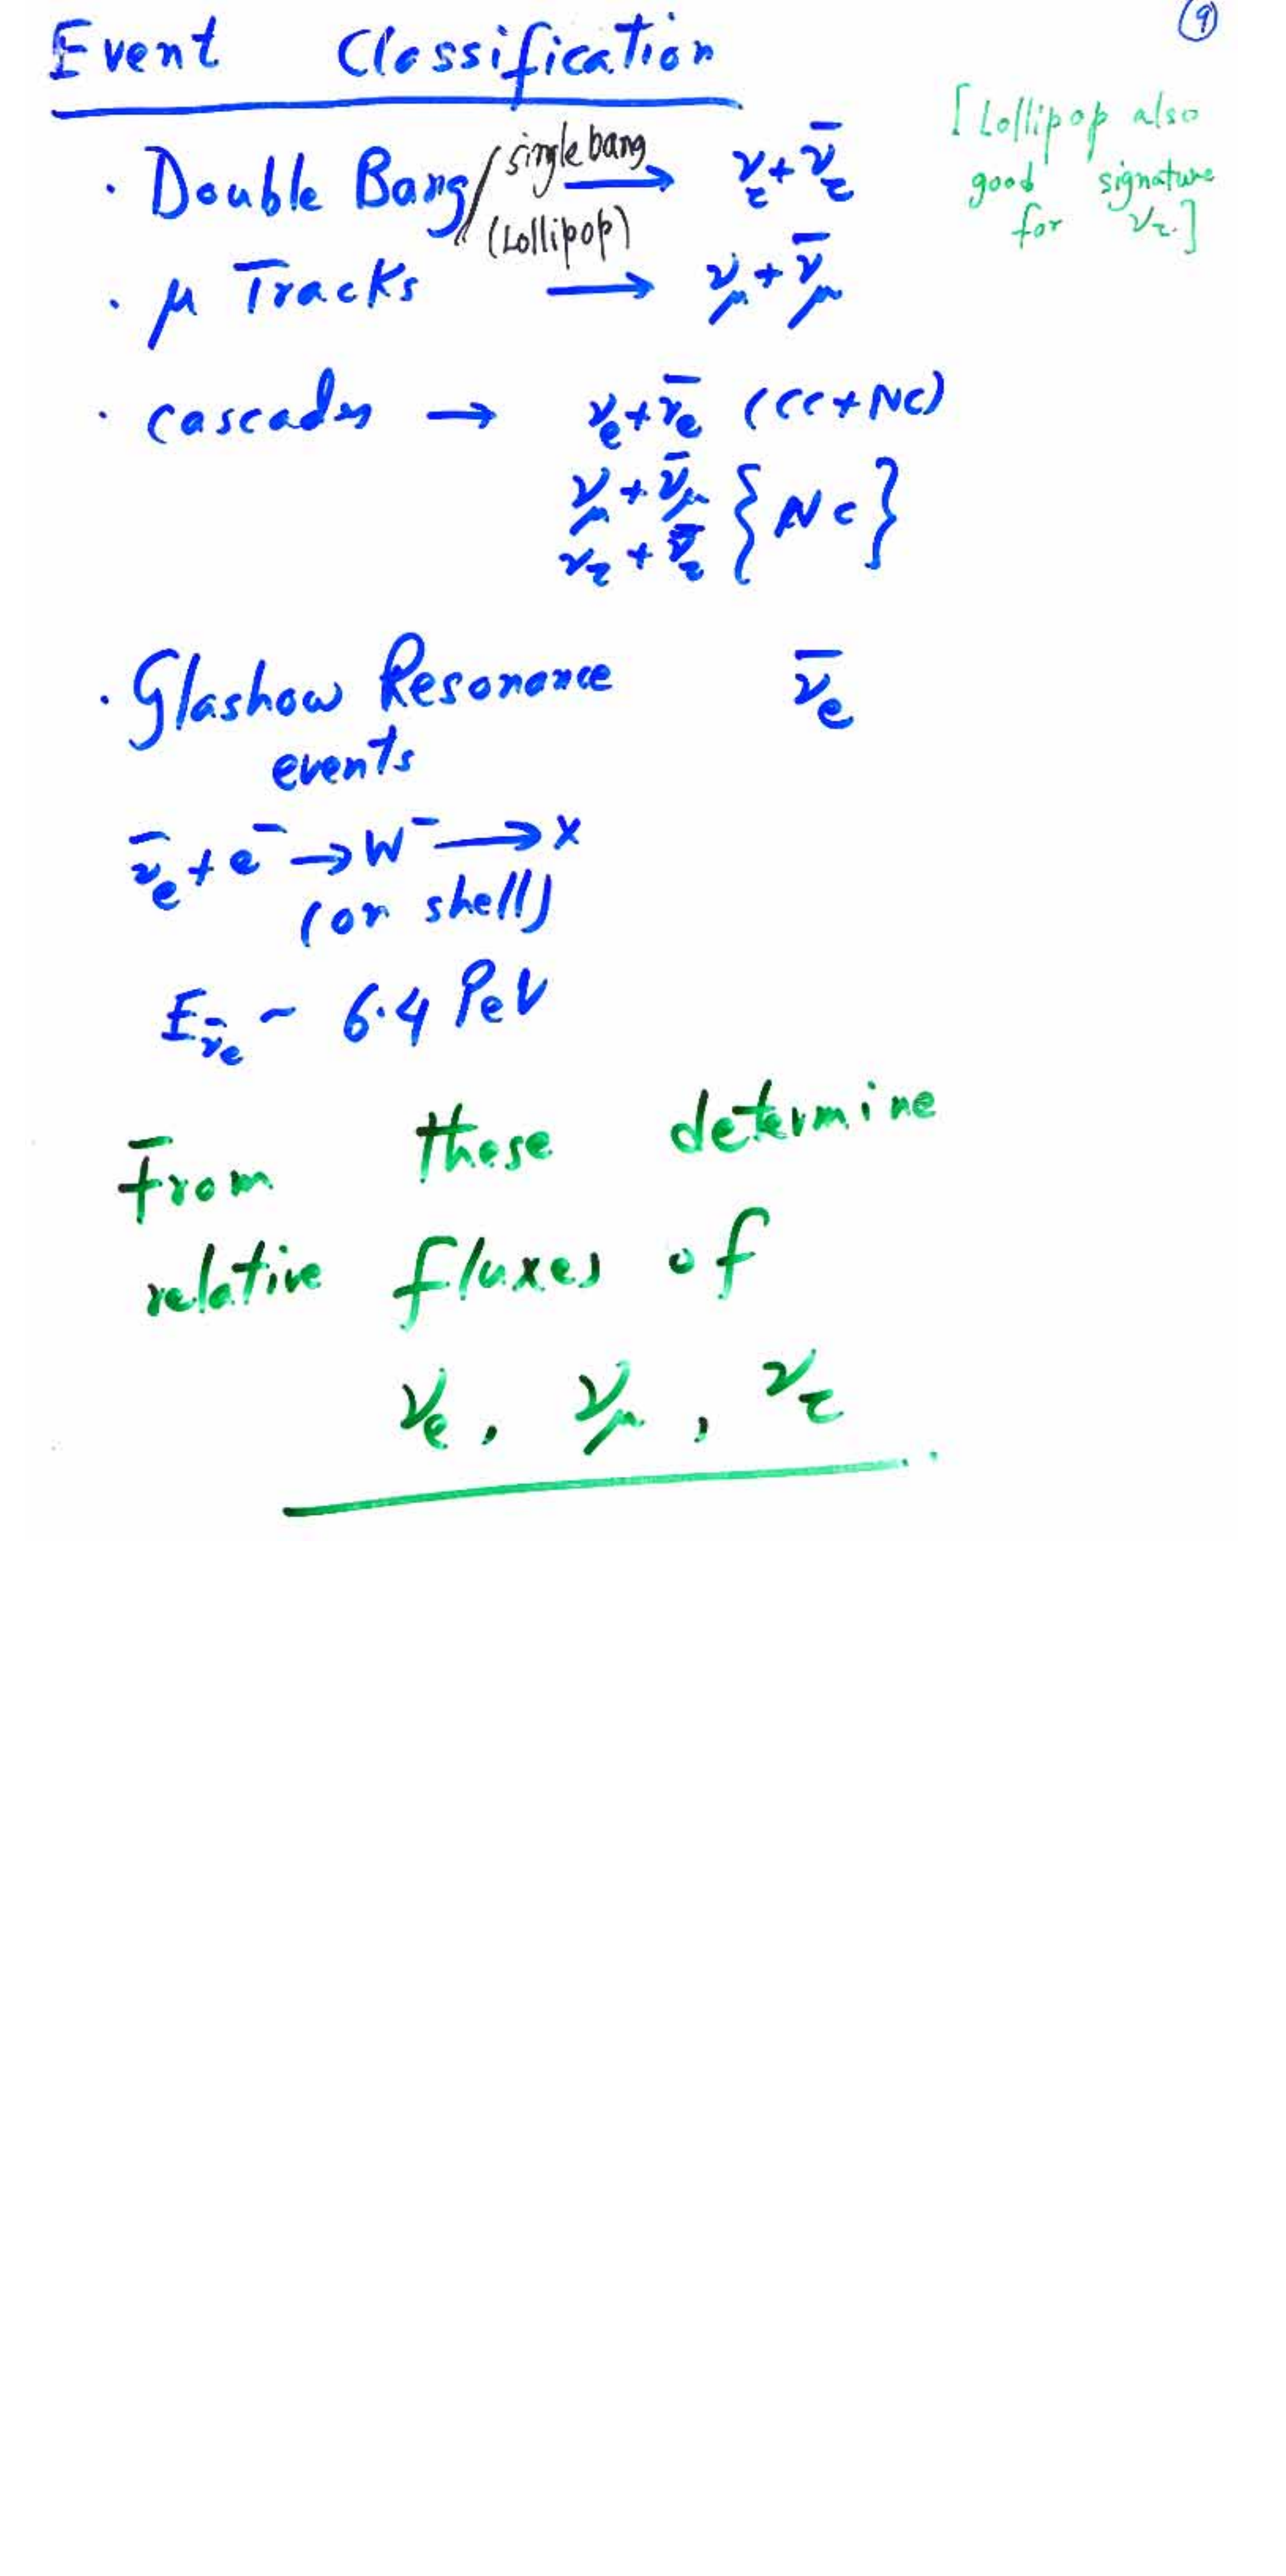 9
Event Classification
[Lollipop also
good signature
for ν_τ.]
· Double Bang/single bang → ν_τ + ν̅_τ
(Lollipop)
· μ Tracks → ν_μ + ν̅_μ
· cascades → ν_e + ν̅_e (CC+NC)
ν_μ + ν̅_μ
{NC}
ν_τ + ν̅_τ
· Glashow Resonance ν̅_e
events
ν̅_e + e⁻ → W⁻ → X
(on shell)
E_ν̅_e ~ 6.4 PeV
From these determine
relative fluxes of
ν_e, ν_μ, ν_τ.